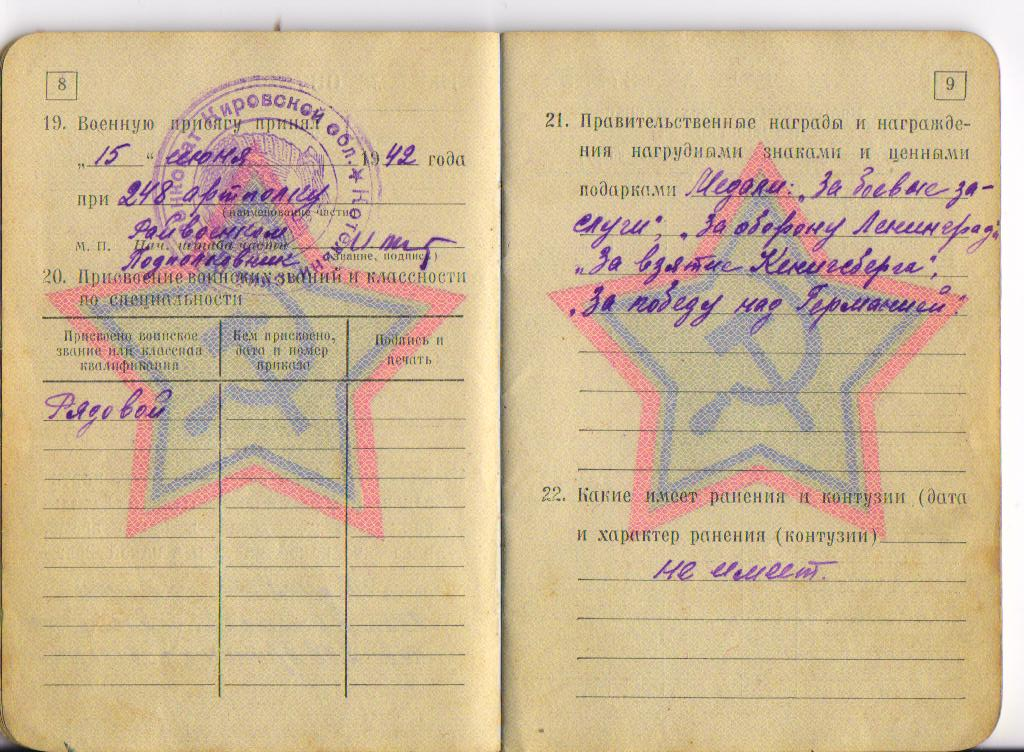 8
19. Военную присягу принял
„15“ июня 1942 года
при 248 артполку
(наименование части)
Райвоенком
м. п. Нач. штаба части
Подполковник (звание, подпись)
20. Присвоение воинских званий и классности
по специальности
Присвоено воинское звание или классная квалификация
Кем присвоено, дата и номер приказа
Подпись и печать
Рядовой
Кировской обл.
9
21. Правительственные награды и награжде-
ния нагрудными знаками и ценными
подарками Медали: „За боевые за-
слуги“, „За оборону Ленинграда“
„За взятие Кенигсберга“,
„За победу над Германией“.
22. Какие имеет ранения и контузии (дата
и характер ранения (контузии)
не имеет.